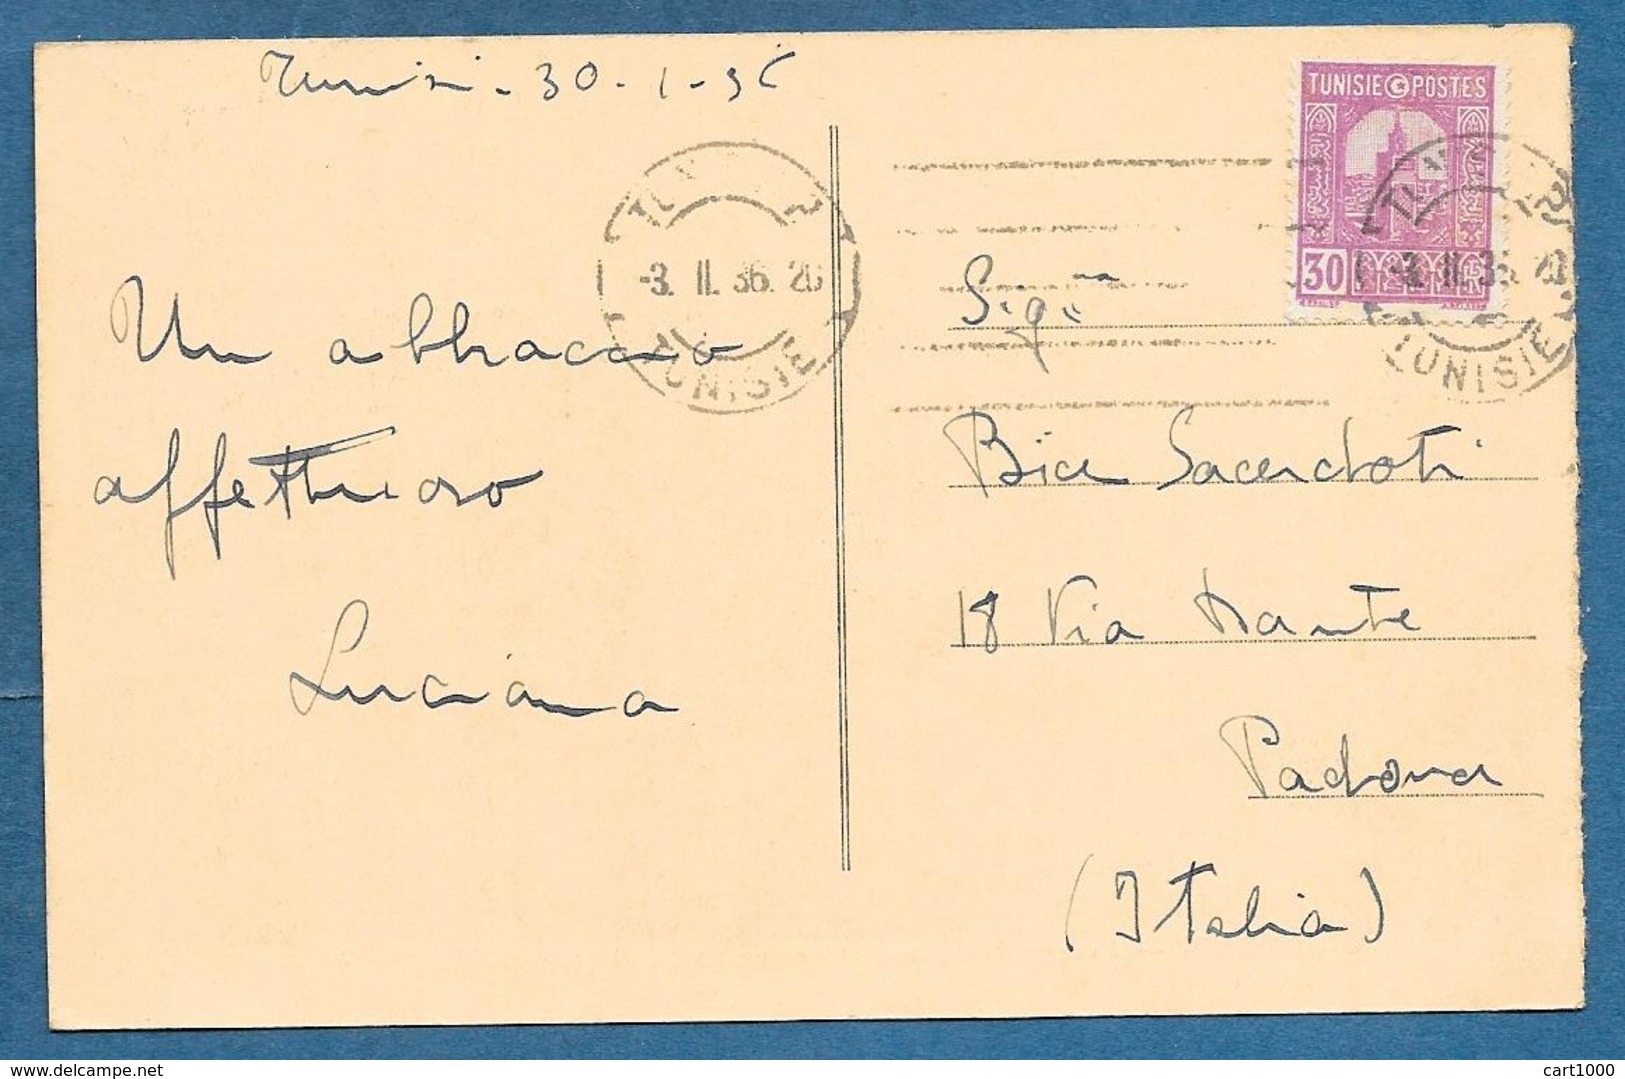 Tunisi - 30-1-36
Un abbraccio
affettuoso
Luciana
TUNISIE POSTES
30
TUNIS
-3. II. 36. 20
TUNISIE
TUNIS
-3. II. 36. 20
TUNISIE
Sig.na
Bice Sacerdoti
18 Via Dante
Padova
(Italia)
www.delcampe.net
cart1000